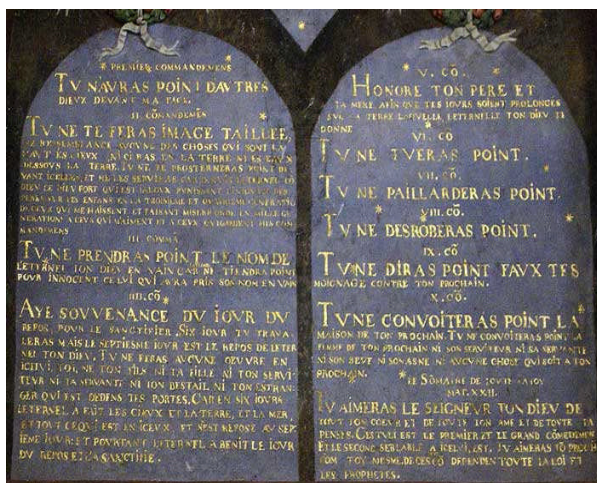 PREMIER COMMANDEMENS
TV NAVRAS POINT DAVTRES
DIEVX DEVANT MA FACE.
II COMANDEMĒS
TV NE TE FERAS IMAGE TAILLEE,
NE RESEMBLANCE AVCVNE DES CHOSES QVI SONT LA
HAVT ES CIEVX, NI CI BAS EN LA TERRE NI ES EAVX
DESSOVS LA TERRE. TV NE TE PROSTERNERAS POINT DE
VANT ICELLES, ET NE LES SERVIRAS
DIEV
ENFANS EN LA TROISIEME ET
DE CEVX QVI ME HAISSENT, ET FAISANT MISERICORDE EN MILLE GE
NERATIONS A CEVX QVI MAIMENT ET A CEVX QVI GARDENT MES COM
MANDEMENS
III COMMĀ
TV NE PRENDRAS POINT LE NOM DE
LETERNEL TON DIEV EN VAIN CAR NE TIENDRA POINT
POVR INNOCENT CELVI QVI AVRA PRIS SON NOM EN VAIN
IIII. CŌ.
AYE SOVVENANCE DV IOVR DV
REPOS, POVR LE SANCTIFIER, SIX IOVR TV TRAVA-
LERAS MAIS LE SEPTIESME IOVR EST LE REPOS DE LETER
NEL TON DIEV, TV NE FERAS AVCVNE OEVVRE EN
ICELVI, TOI, NE TON FILS NI TA FILLE NI TON SERVI
TEVR NI TA SERVANTE NI TON BESTAIL NI TON ESTRAN-
GER QVI EST DEDENS TES PORTES, CAR EN SIX IOVRS
LETERNEL A FAIT LES CIEVX ET LA TERRE, ET LA MER,
ET TOVT CE QVI EST EN ICEVX, ET SEST REPOSE AV SEP
TIEME IOVR: ET POVRTANT LETERNEL A BENIT LE IOVR
DV REPOS ET LA SANCTIFIE.
V. CŌ.
HONORE TON PERE ET
TA MERE, AFIN QVE TES IOVRS SOIENT PROLONGES
SVR LA TERRE LAQVELLE LETERNELLE TON DIEV TE
DONNE
VI. CŌ
TV NE TVERAS POINT.
VII. CŌ.
TV NE PAILLARDERAS POINT.
VIII. CŌ.
TV NE DESROBERAS POINT.
IX. CŌ
TV NE DIRAS POINT FAVX TES
MOIGNAGE CONTRE TON PROCHAIN.
X. CŌ.
TV NE CONVOITERAS POINT LA
MAISON DE TON PROCHAIN. TV NE CONVOITERAS POINT LA
FEMME DE TON PROCHAIN NI SON SERVITEVR NI SA SERVANTE
NI SON BEVF NI SON ASNE NI AVCVNE CHOSE QVI SOIT A TON
PROCHAIN.
LE SOMAIRE DE TOVTE LA LOY
MAT. XXII.
TV AIMERAS LE SEIGNEVR TON DIEV DE
TOVT TON COEVR ET DE TOVTE TON AME ET DE TOVTE TA
PENSEE. CESTVI EST LE PREMIER ET LE GRAND COMEDEMEN
ET LE SECOND SERLABLE A ICELVI, EST, TV AIMERAS TŌ PROCH
COM TOY MESME. DE CES DEPENDEN TOVTE LA LOI ET
LES PROPHETES.